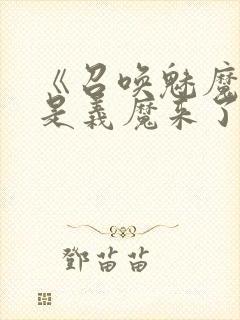 《召唤魅魔
是義魔来了
鄧苗苗